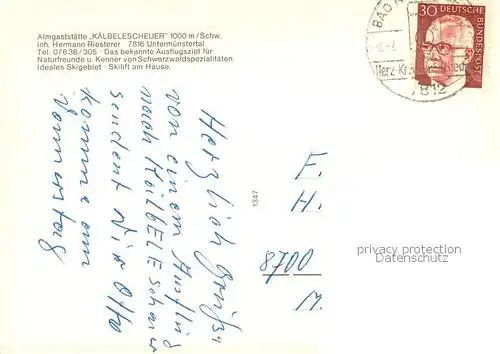 Almgaststätte „KÄLBELESCHEUER" 1000 m / Schw.
Inh. Hermann Riesterer  7816 Untermünstertal
Tel. 07636 / 305 · Das bekannte Ausflugsziel für
Naturfreunde u. Kenner von Schwarzwaldspezialitäten
Ideales Skigebiet · Skilift am Hause.
BAD
7812
30
DEUTSCHE
BUNDESPOST
Herzlich Grüße
von einem Ausflug
nach KälBELEscheuer
sendent Otto
komme am
Donnerstag
1347
F.
H.
8700
M.
privacy protection
DatenSchutz